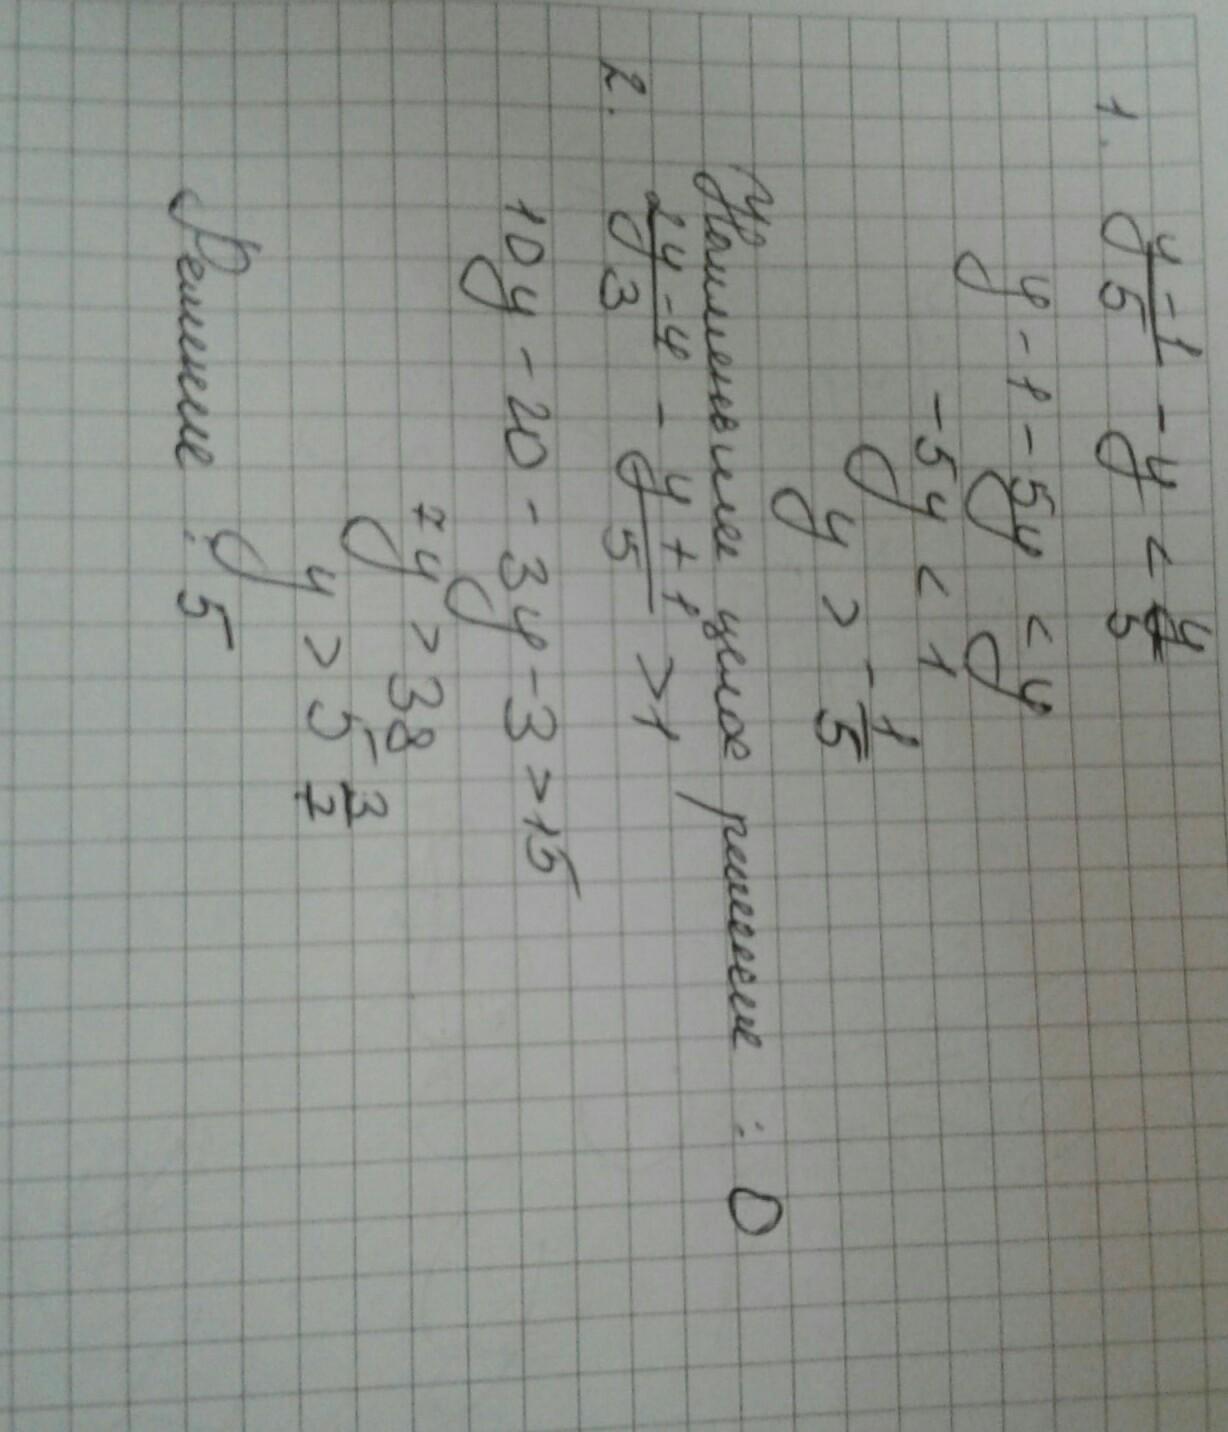 1. (y-1)/5 - y < y/5
y - 1 - 5y < y
-5y < 1
y > -1/5
Наименьшее целое решение : 0
2. (2y-4)/3 - (y+1)/5 > 1
10y - 20 - 3y - 3 > 15
7y > 38
y > 5 3/7
Решение : 5